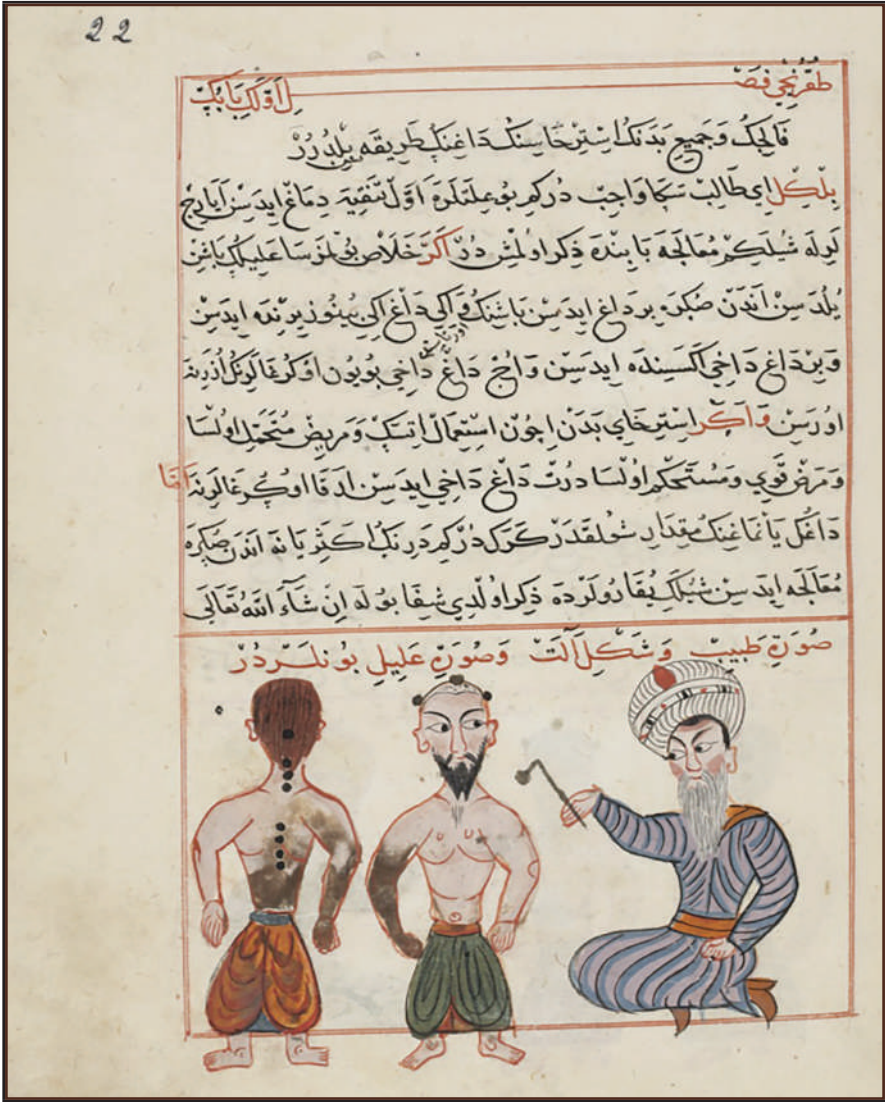 22
طقزنجي فصل اولكي بابك
فالجك وجميع بدنك استرخاسنك داغنك طريقه بيلدرر
بلكل اي طالب سكا واجب دركم بو علتلره اول تنقيه دماغ ايدسن ايارج
لرله شيلكم معالجه بابنده ذكر اولمش در اكر خلاص بولمزسا عليلك باشن
يلدسن اندن صكره بر داغ ايدسن باشنك واكي داغ اكي بينوز يرنده ايدسن
اورتاسن
وبر داغ داخي اكسينده ايدسن واوج داغ داخي بويون اوكرغالرنك اززنه
اورسن واكر استرخاي بدن اجون استعمال اتسك ومريض متحمل اولسا
ومرض قوي ومستحكم اولسا درت داغ داخي ايدسن ارقا اوكرغالرنه اما
داغك ياغاغنك مقدار شولقدر كرك دركم درنك اكثر يانه اندن صكره
معالجه ايدسن شيلكه يقارولرده ذكر اولدي شفا بوله ان شاء الله تعالى
صورة طبيب وشكل الت وصورة عليل بونلردر